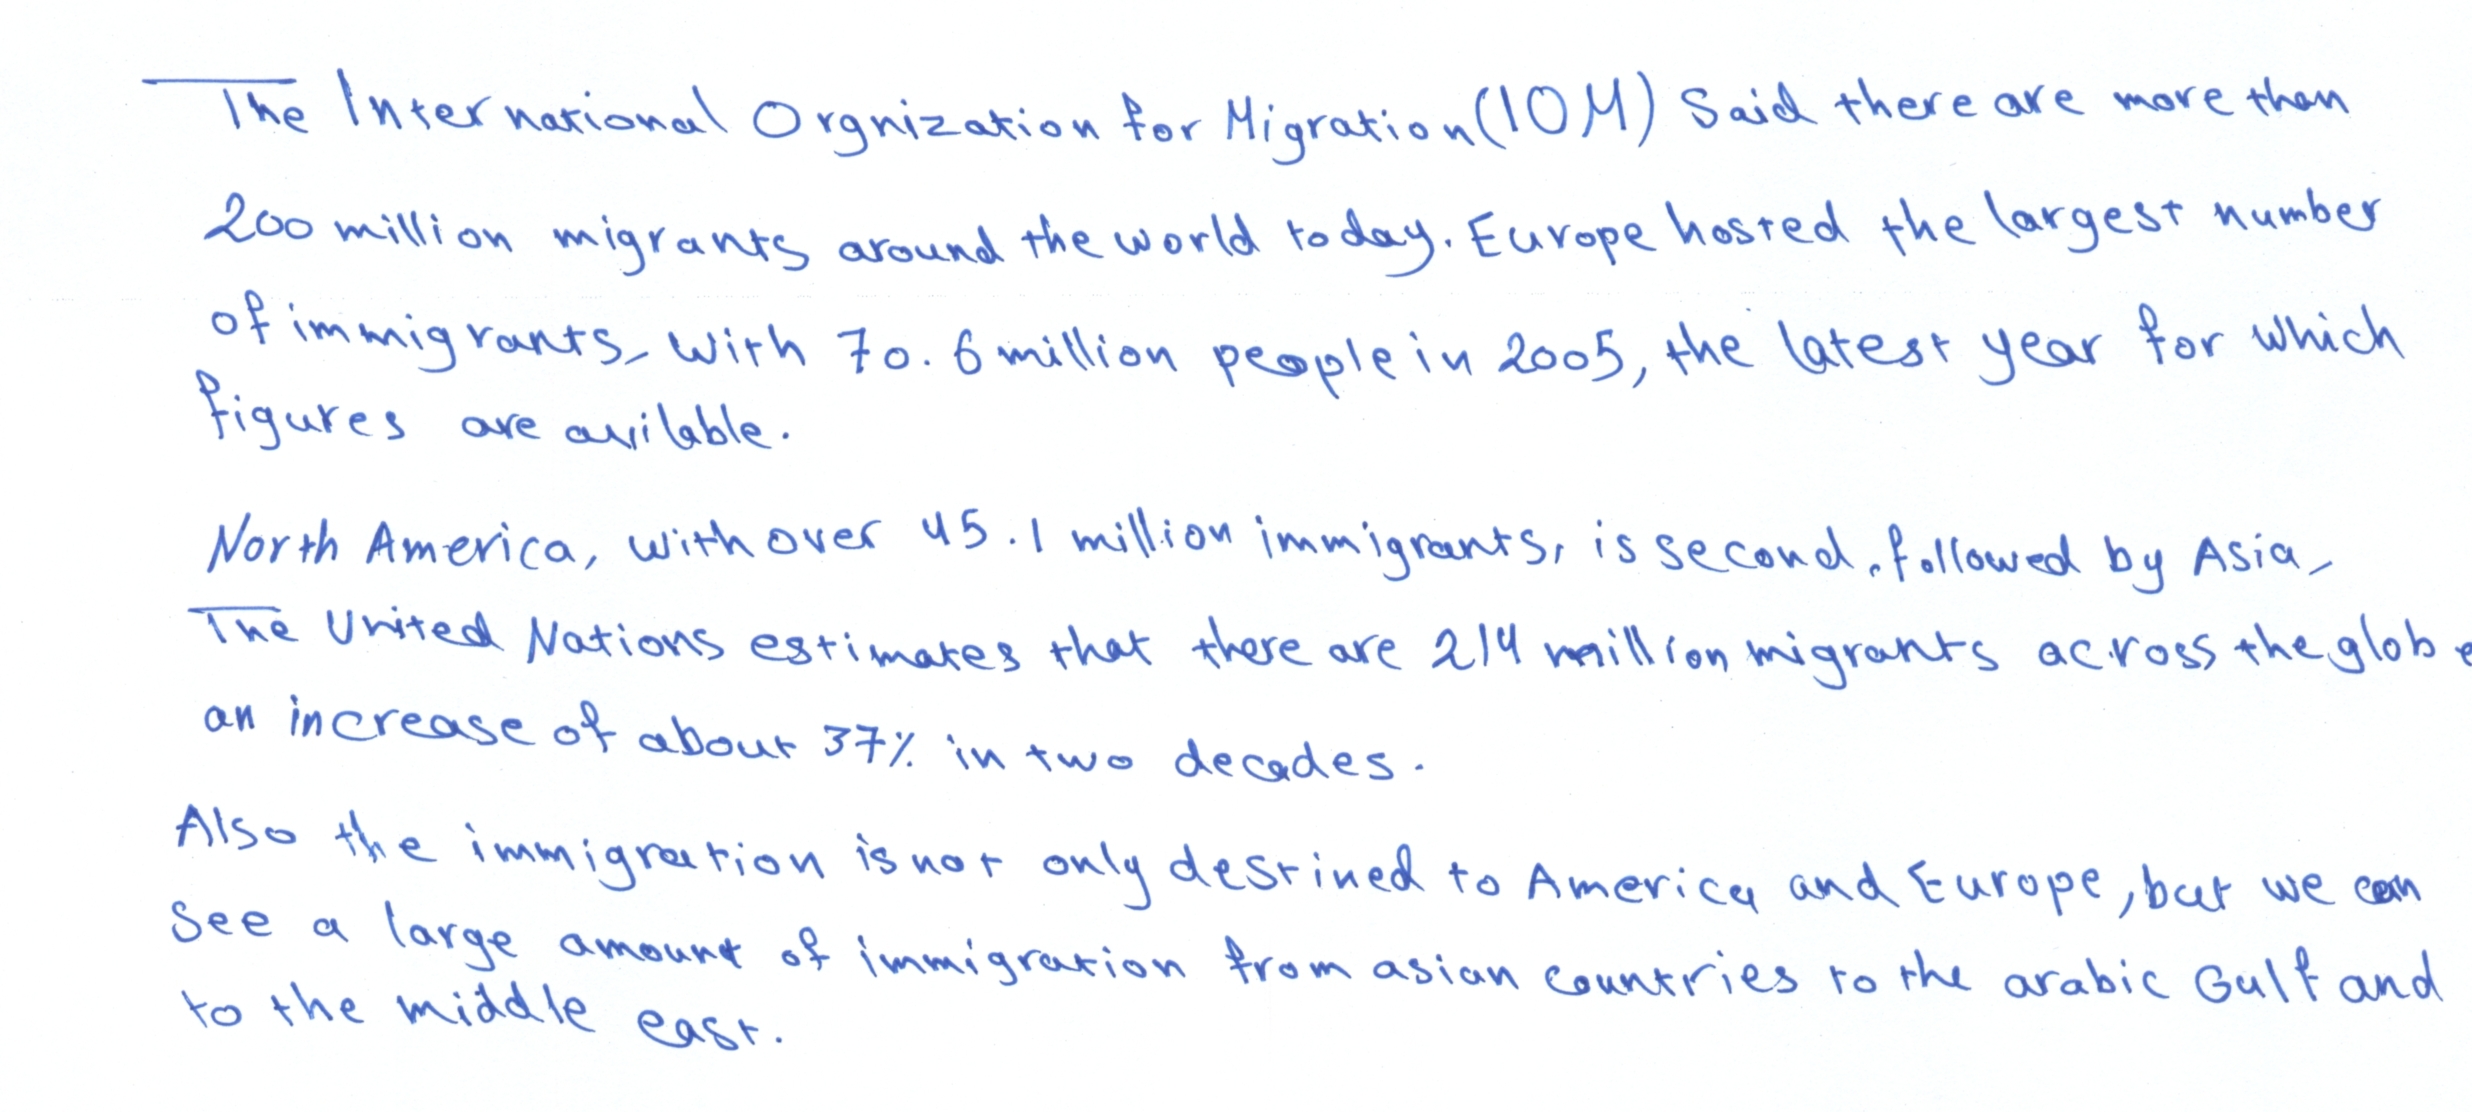 The International Orgnization for Migration (IOM) Said there are more than
200 million migrants around the world today. Europe hosted the largest number
of immigrants, with 70.6 million people in 2005, the latest year for which
figures are avilable.
North America, with over 45.1 million immigrants, is second, followed by Asia,
The United Nations estimates that there are 214 million migrants across the globe
an increase of about 37% in two decades.
Also the immigration is not only destined to America and Europe, but we can
See a large amount of immigration from asian countries to the arabic Gulf and
to the middle east.